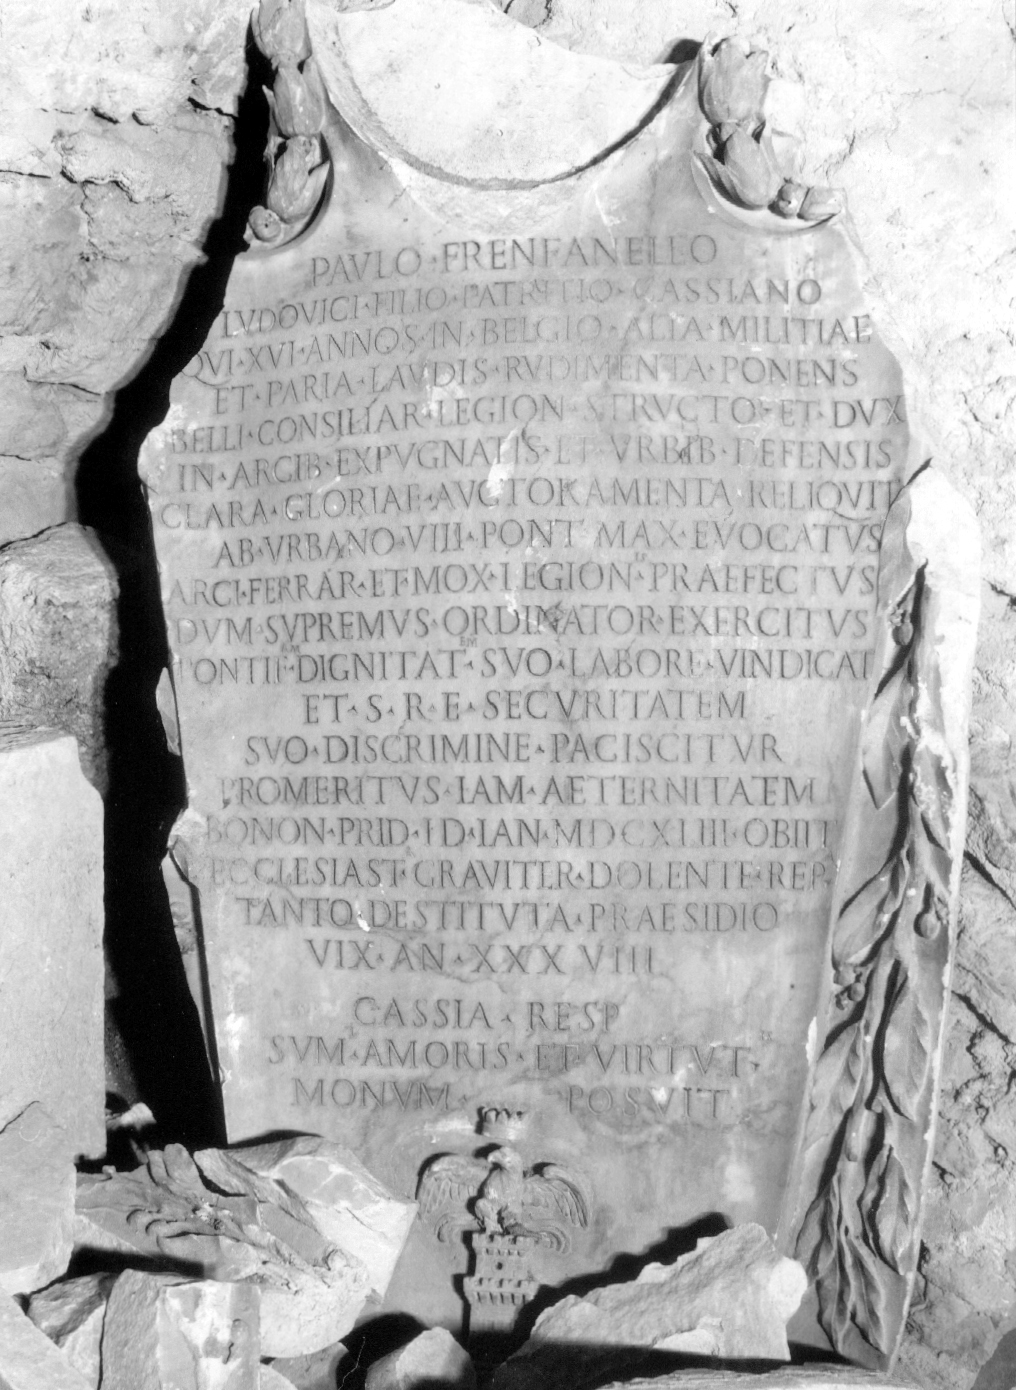 PAVLO·FRENFANELLO
LVDOVICI·FILIO·PATRITIO·CASSIANO
QVI·XVI·ANNOS·IN·BELGIO·ALTA·MILITIAE
ET·PARIA·LAVDIS·RVDIMENTA·PONENS
BELLI·CONSILIAR·LEGION·STRVCTOR·ET·DVX
IN·ARCIB·EXPVGNATIS·ET·VRBIB·DEFENSIS
CLARA·GLORIAE·AVCTORAMENTA·RELIQVIT
AB·VRBANO·VIII·PONT·MAX·EVOCATVS
ARCI·FERRAR·ET·MOX·LEGION·PRAEFECTVS
DVM·SVPREMVS·ORDINATOR·EXERCITVS
PONTIF·DIGNITAT·SVO·LABORE·VINDICAT
ET·S·R·E·SECVRITATEM
SVO·DISCRIMINE·PACISCITVR
PROMERITVS·IAM·AETERNITATEM
BONON·PRID·ID·IAN·MDCXLIII·OBIIT
ECCLESIAST·GRAVITER·DOLENTE·REP
TANTO·DESTITVTA·PRAESIDIO
VIX·AN·XXXVIII
CASSIA·RESP
SVM·AMORIS·ET·VIRTVT·
MONVM·POSVIT